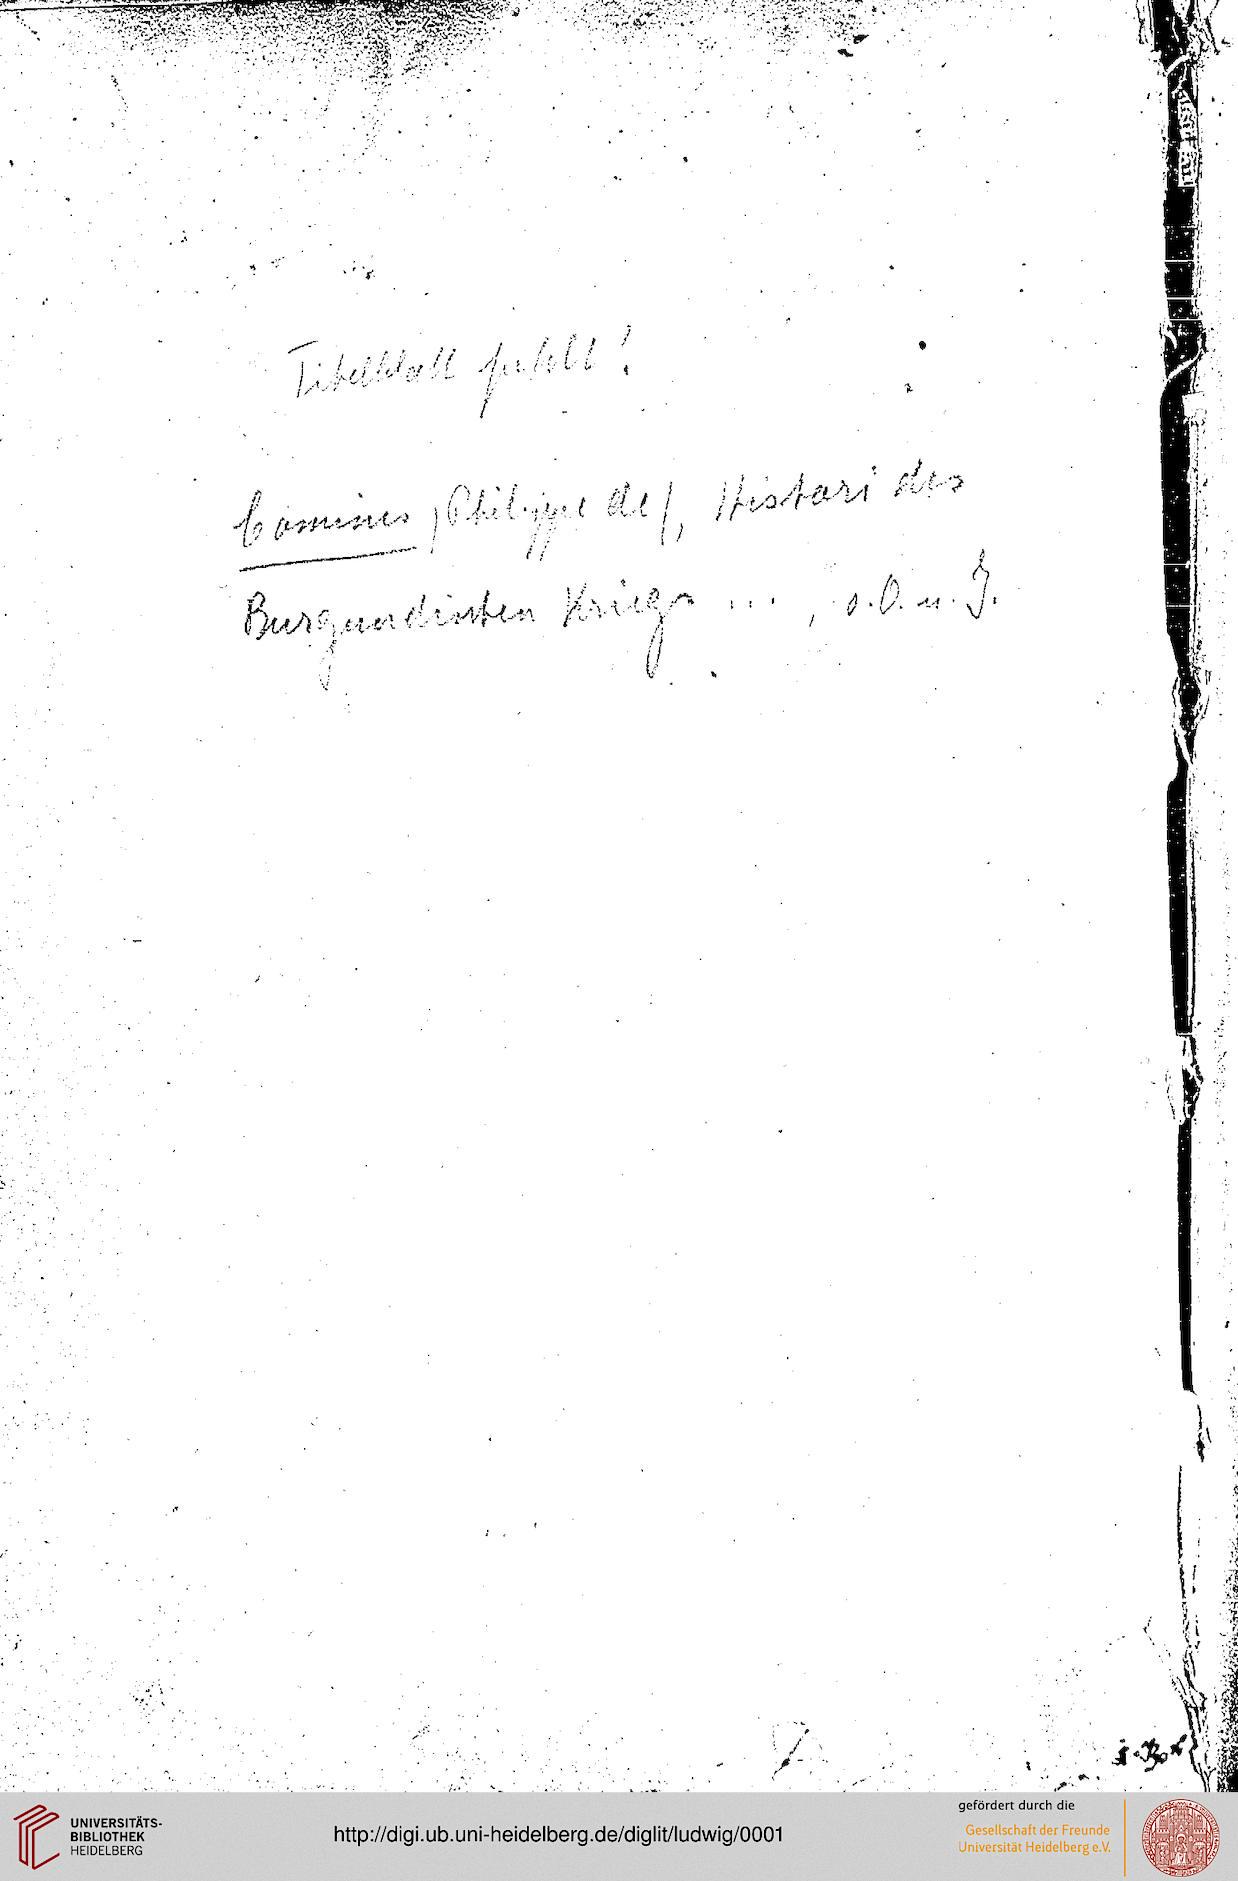 Titelblatt fehlt!
Comines, Philippe de/, Histori des
Burgundischen Kriegs ..., o.O. u. J.
UNIVERSITÄTS-
BIBLIOTHEK
HEIDELBERG
http://digi.ub.uni-heidelberg.de/diglit/ludwig/0001
gefördert durch die
Gesellschaft der Freunde
Universität Heidelberg e.V.